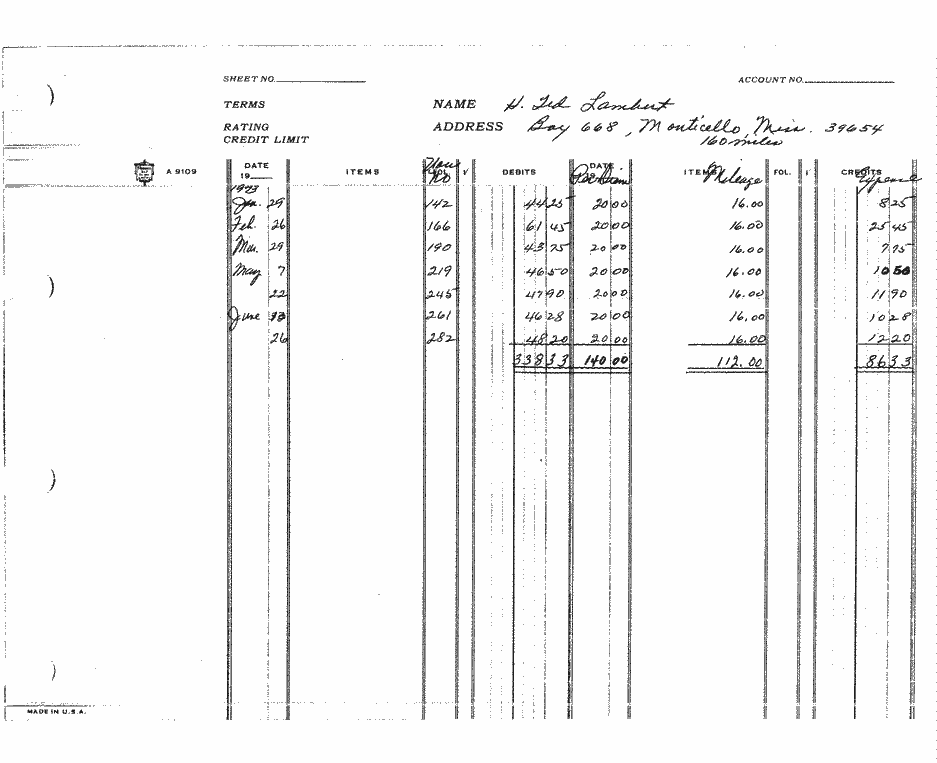 SHEET NO. ACCOUNT NO.
TERMS NAME H. Ted Lambert
RATING ADDRESS Box 668, Monticello, Miss. 39654
CREDIT LIMIT 160 miles
A 9109 DATE 19 ITEMS No DEBITS DATE Per Diem ITEMS Mileage FOL. CREDITS Expense
1973
Jan. 29 142 44 25 20 00 16.00 8 25
Feb. 26 166 61 45 20 00 16.00 25 45
Mar. 29 190 43 75 20 00 16.00 7 75
May 7 219 46 50 20 00 16.00 10 50
22 245 47 90 20 00 16.00 11 90
June 13 261 46 28 20 00 16.00 10 28
26 282 48 20 20 00 16.00 12 20
338 33 140 00 112.00 86 33
MADE IN U.S.A.